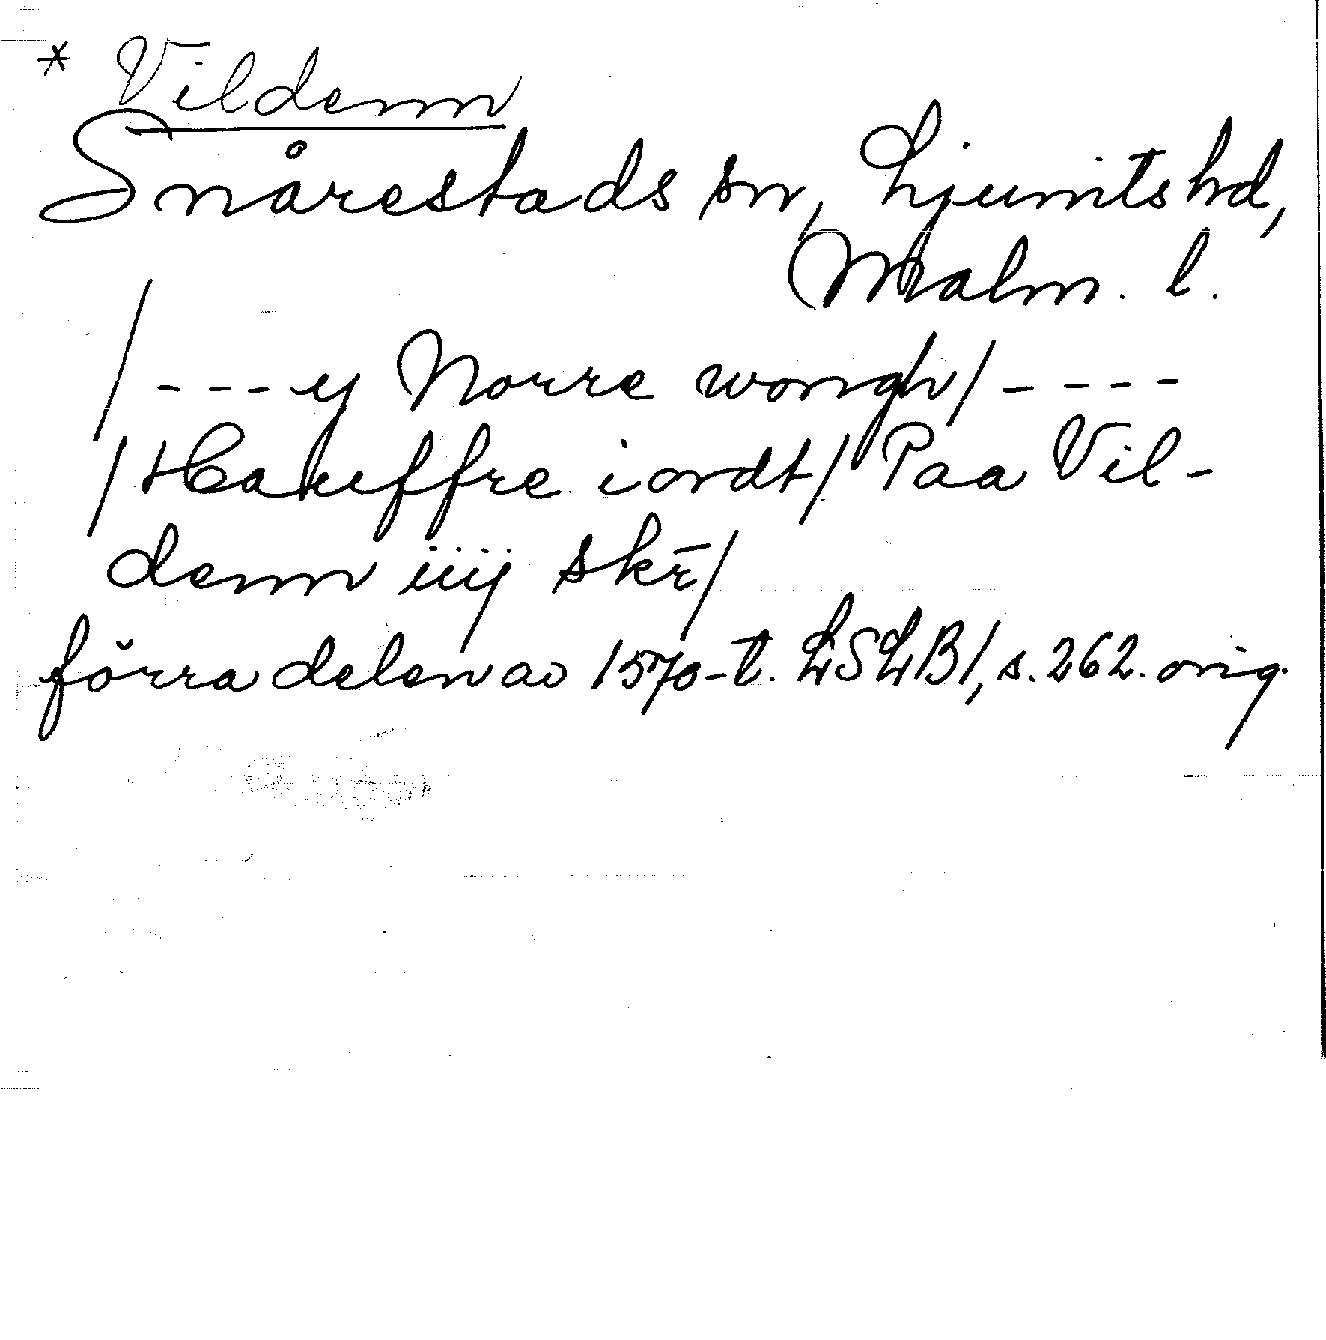 * Vildenn
Snårestads sn, Ljunits hd,
Malm. l.
/ - - - y Norre wongh / - - - -
/ Haueffre iordt / Paa Vil-
denn iiij skr̄ /
förra delen av 1570-t. LSLB1, s. 262. orig.